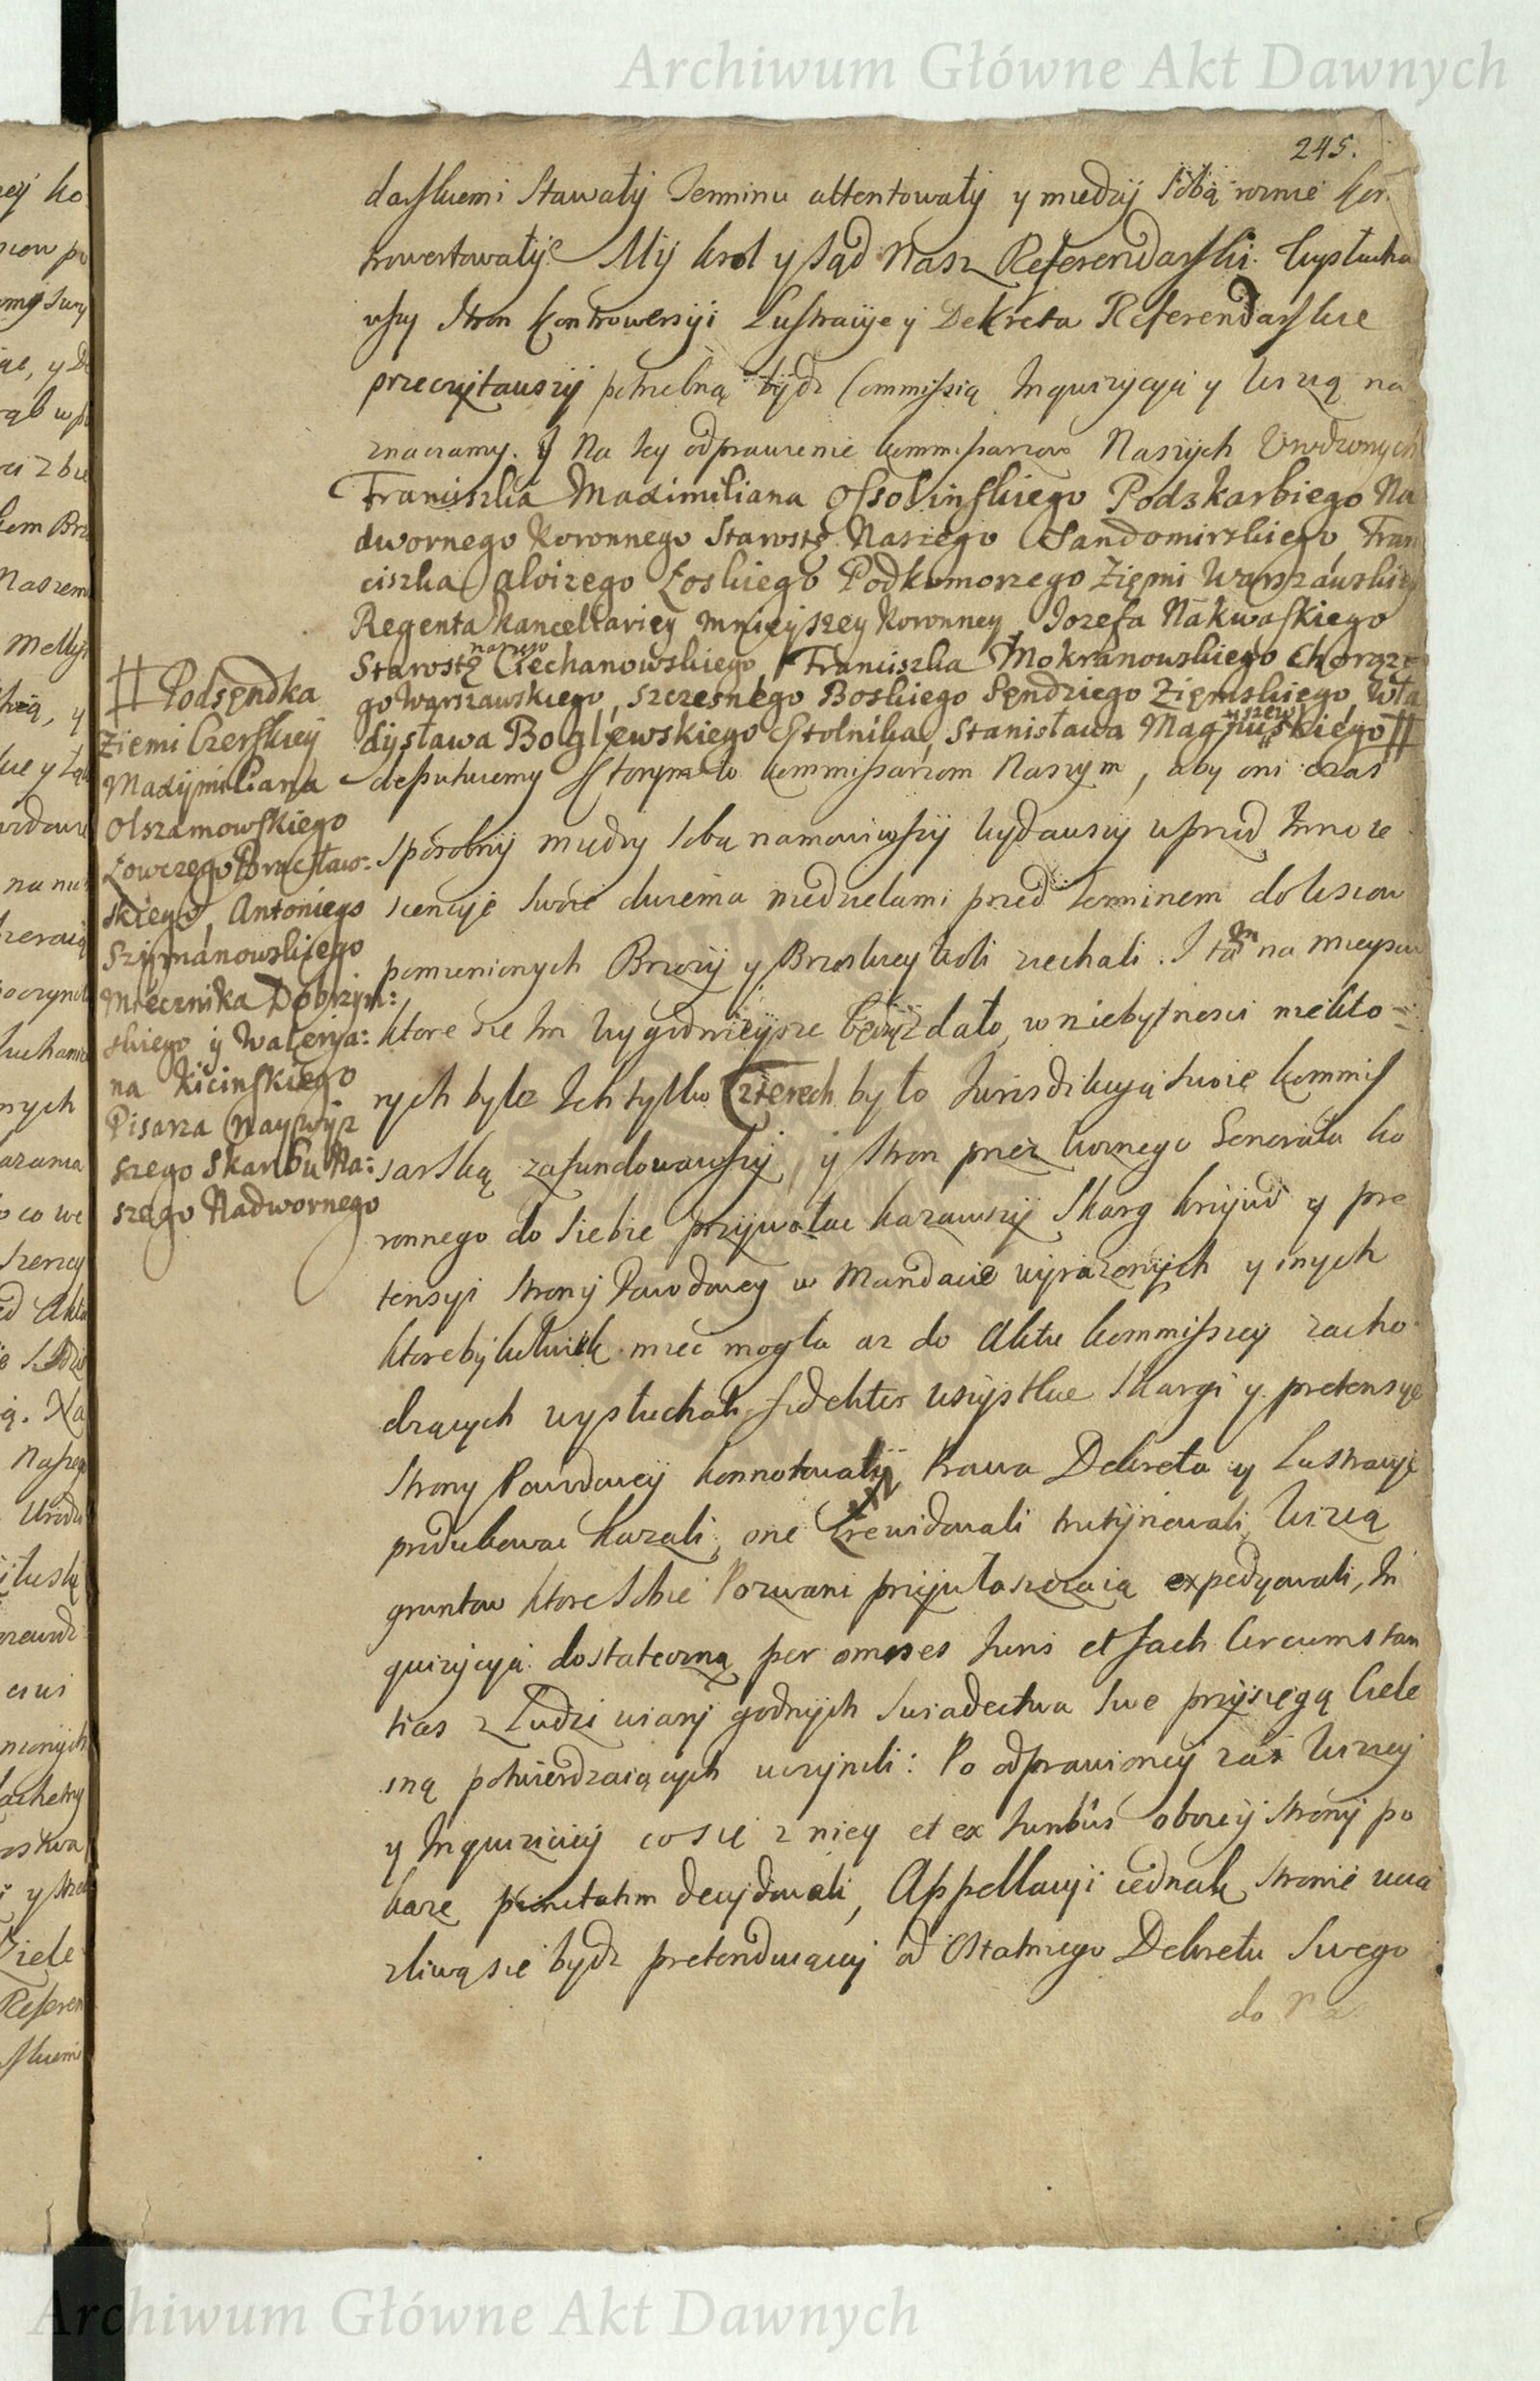 Archiwum Główne Akt Dawnych
245.
darskiemi Stawały Terminu attentowały y miedzÿ sobą rożnie kon
trowertowałÿ. Mÿ krol y Sąd Nasz Referendarski. Wysłucha
wszy stron kontrowersÿi Lustracÿe ÿ Dekreta Referendarskie
przeczÿtawszÿ potrzebną bÿdz Commissią Inquizÿcÿą y Wizÿą na
znaczamy. Y Na tey odprawienie kommissarzow Naszÿch Urodzonych
Franciszka Maximiliana Ossolinskiego Podskarbiego Na
dwornego Koronnego Starostę Naszego Sandomirskiego, Fran
ciszka Aloizego Łoskiego Podkomorzego Ziemi Warszawskiey
Regenta Kancellariey mnieyszey Koronney, Iozefa Nakwaskiego
Starostę naszego Ciechanowskiego, Franciszka Mokranowskiego Chorąże
go Warszawskiego, Szczesnego Boskiego Sendziego Ziemskiego, Wła
dysława Boglewskiego Stolnika, Stanisława Magnuszewskiego #
deputuiemy Ktorym to kommissarzom Naszym, aby oni czas
sposobnÿ miedzy sobą namowiwszÿ wydawszÿ wprzod Innote
scencÿe swoie dwiema niedzielami przed terminem do wsiow
pomienionych Brzozÿ y Brzoskiey Woli ziechali. I tam na mieyscu
ktore sie Im wygodnieysze bÿdz zdało, w niebytnosci niekto=
rych byle Ich tylko Czterech było Iurisdikcyą swoię kommis
sarską zafundowawszÿ, ÿ stron przez woznego Generała ko
ronnego do siebie przÿwołac kazawszÿ Skarg krzÿwd y pre
tensÿi stronÿ Powodowey w Mandacie wÿrażonÿch y inych
ktorebÿkolwiek miec mogła az do Aktu kommissÿey zacho
dzących wysłuchali fideliter wszÿstkie Skargi y pretensye
strony Powodowey konnotowalÿ, Prawa Dekreta y Lustracÿe
produkowac kazali, one zrewidowali trutÿnowali, Wizÿą
gruntow ktore sobie Pozwani przÿwłaszczaią expedyowali, In
quizÿcÿą dostateczną per omnes Iuris et facti Circumstan
tias z Ludzi wiarÿ godnÿch swiadectwa swe przÿsięgą Ciele
sną potwierdzaiących uczÿnili: Po odprawionej zaś Wizyej
y Inquiziciej co się z niey et ex Iuribus oboiej stronÿ po
kaze punctatim decÿdowali, Appellacyi iednak stronie ucią
zliwą się bydz pretenduiącej od Ostatniego Dekretu Swego
do Nas
# Podsendka
Ziemi Czerskiey
Maxÿmiliana
Olszamowskiego
Łowczego Bracław=
skiego, Antoniego
Szÿmanowskiego
Miecznika Dobrzÿn:
skiego ÿ Walerÿa:
na Kicinskiego
Pisarza Naywÿż
szego Skarbu Na:
szego Nadwornego
Archiwum Główne Akt Dawnych